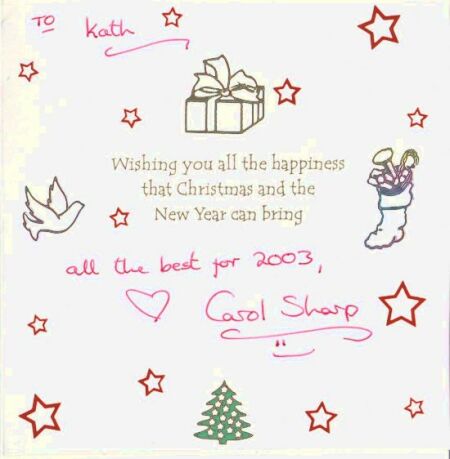 TO Kath
Wishing you all the happiness
that Christmas and the
New Year can bring
all the best for 2003,
Carol Sharp